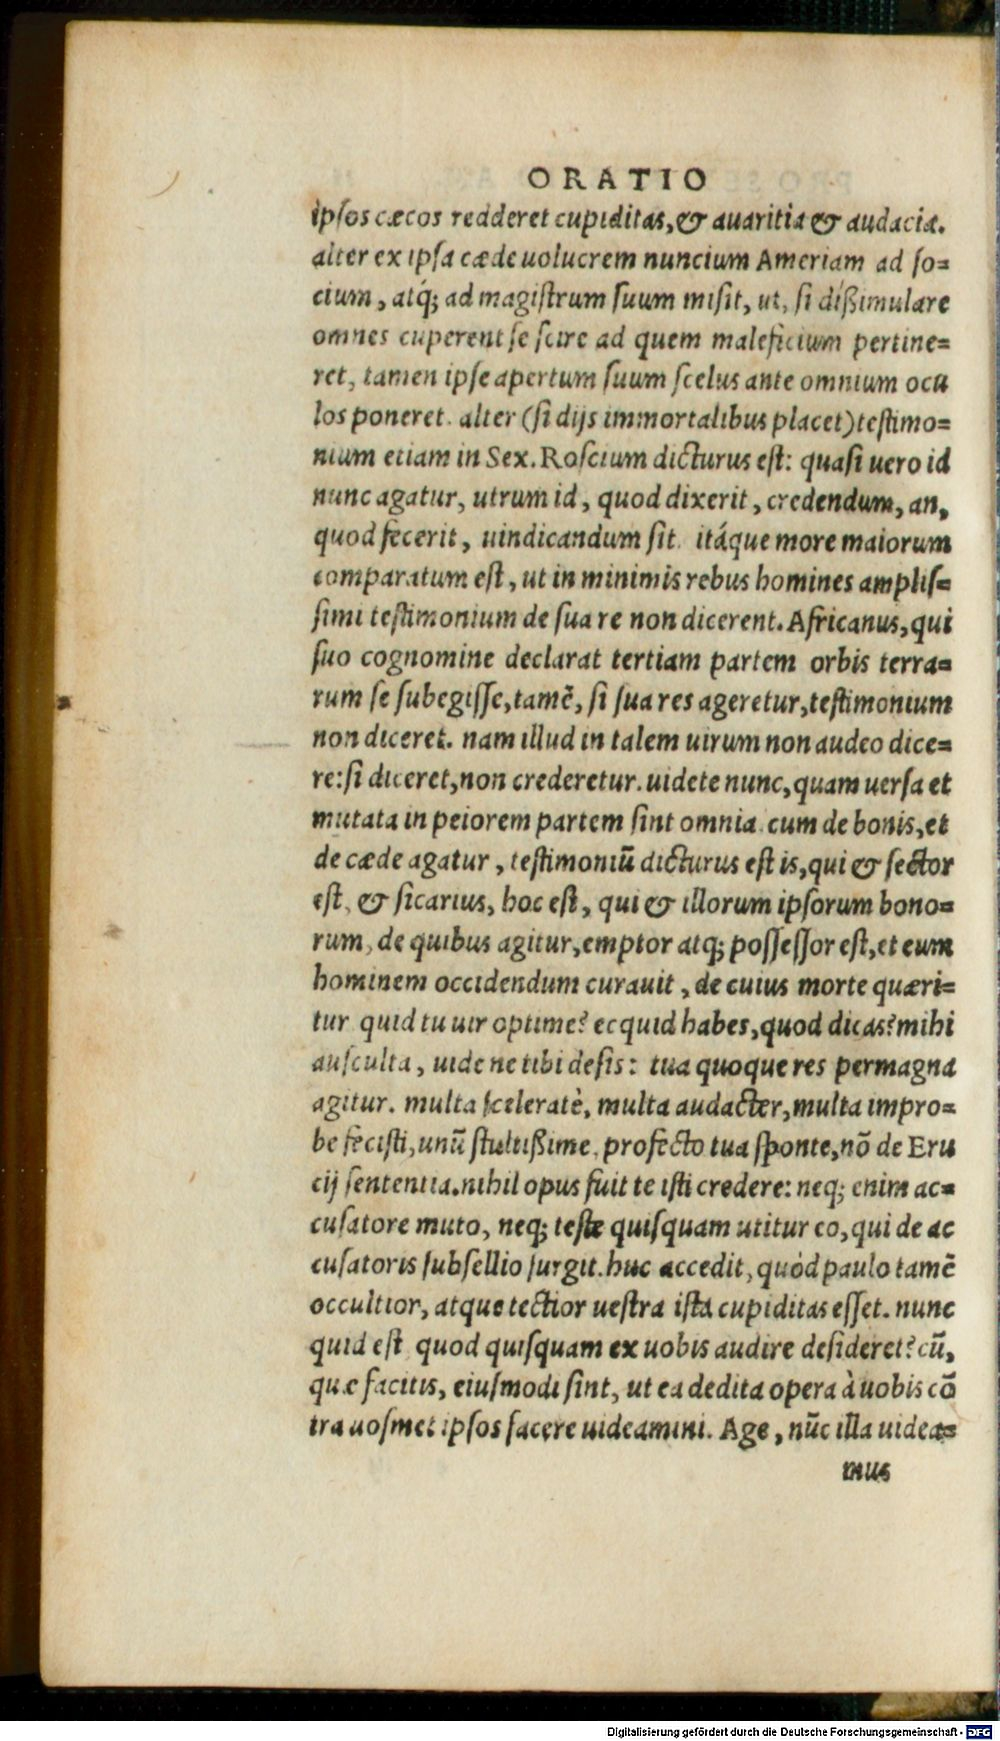 ORATIO
ipſos cæcos redderet cupiditas, & auaritia & audacia.
alter ex ipſa cæde uolucrem nuncium Ameriam ad ſo=
cium, atq́; ad magiſtrum ſuum miſit, ut, ſi dißimulare
omnes cuperent ſe ſcire ad quem maleficium pertine=
ret, tamen ipſe apertum ſuum ſcelus ante omnium ocu
los poneret. alter (ſi dijs immortalibus placet) teſtimo=
nium etiam in Sex. Roſcium dicturus eſt: quaſi uero id
nunc agatur, utrum id, quod dixerit, credendum, an,
quod fecerit, uindicandum ſit. itáque more maiorum
comparatum eſt, ut in minimis rebus homines ampliſ=
ſimi teſtimonium de ſua re non dicerent. Africanus, qui
ſuo cognomine declarat tertiam partem orbis terra=
rum ſe ſubegiſſe, tamẽ, ſi ſua res ageretur, teſtimonium
non diceret. nam illud in talem uirum non audeo dice=
re: ſi diceret, non crederetur. uidete nunc, quam uerſa et
mutata in peiorem partem ſint omnia. cum de bonis, et
de cæde agatur, teſtimoniũ dicturus eſt is, qui & ſector
eſt, & ſicarius, hoc eſt, qui & illorum ipſorum bono=
rum, de quibus agitur, emptor atq; poſſeſſor eſt, et eum
hominem occidendum curauit, de cuius morte quæri=
tur. quid tu uir optime? ecquid habes, quod dicas? mihi
auſculta, uide ne tibi deſis: tua quoque res permagna
agitur. multa ſceleratè, multa audacter, multa impro=
be feciſti, unũ ſtultißime. profecto tua ſponte, nõ de Eru
cij ſententia. nihil opus fuit te iſti credere: neq; enim ac=
cuſatore muto, neq; teſte quiſquam utitur eo, qui de ac
cuſatoris ſubſellio ſurgit. huc accedit, quòd paulo tamẽ
occultior, atque tectior ueſtra iſta cupiditas eſſet. nunc
quid eſt quod quiſquam ex uobis audire deſideret? cũ,
quæ facitis, eiuſmodi ſint, ut ea dedita opera à uobis cõ
tra uoſmet ipſos facere uideamini. Age, nũc illa uidea=
mus
Digitalisierung gefördert durch die Deutsche Forschungsgemeinschaft - DFG